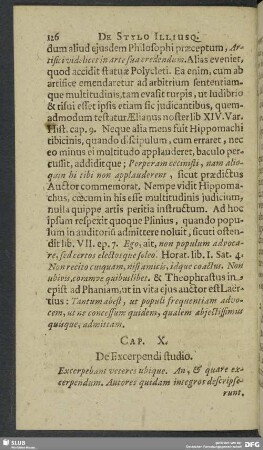 126 DE STYLO ILLIUSQ.
dum aliud ejusdem Philosophi præceptum, Ar-
tifici videlicet in arte sua credendum. Alias eveniet,
quod accidit statuæ Polycleti. Ea enim, cum ab
artifice emendaretur ad arbitrium sententiam-
que multitudinis, tam evasit turpis, ut ludibrio
& risui esset ipsis etiam sic judicantibus, quem-
admodum testatur Ælianus noster lib XIV. Var.
Hist. cap. 9. Neque alia mens fuit Hippomachi
tibicinis, quando discipulum, cum erraret, nec
eo minus ei multitudo applauderet, baculo per-
cussit, addiditque; Perperam cecinisti, nam alio-
quin hi tibi non applauderent, sicut prædictus
Auctor commemorat. Nempe vidit Hippoma-
chus, cœcum in his esse multitudinis judicium,
nulla quippe artis peritia instructum. Ad hoc
ipsum respexit quoque Plinius, quando popu-
lum in auditoriû admittere noluit, sicuti osten-
dit lib. VII. ep. 7. Ego, ait, non populum advoca-
re, sed certos electosque soleo. Horat. lib I. Sat. 4.
Non recito cuiquam, nisi amicis, idque coactus. Non
ubivis, coramve quibuslibet. & Theophrastus in
epist ad Phaniam, ut in vita ejus auctor est Laër-
tius: Tantum abest, ut populi frequentiam advo-
cem, ut ne concessum quidem, qualem abjectissimus
quisque, admittam.
CAP. X.
De Excerpendi studio.
Excerpebant veteres ubique. An, & quare ex-
cerpendum. Autores quidam integros descripse-
runt.
SLUB